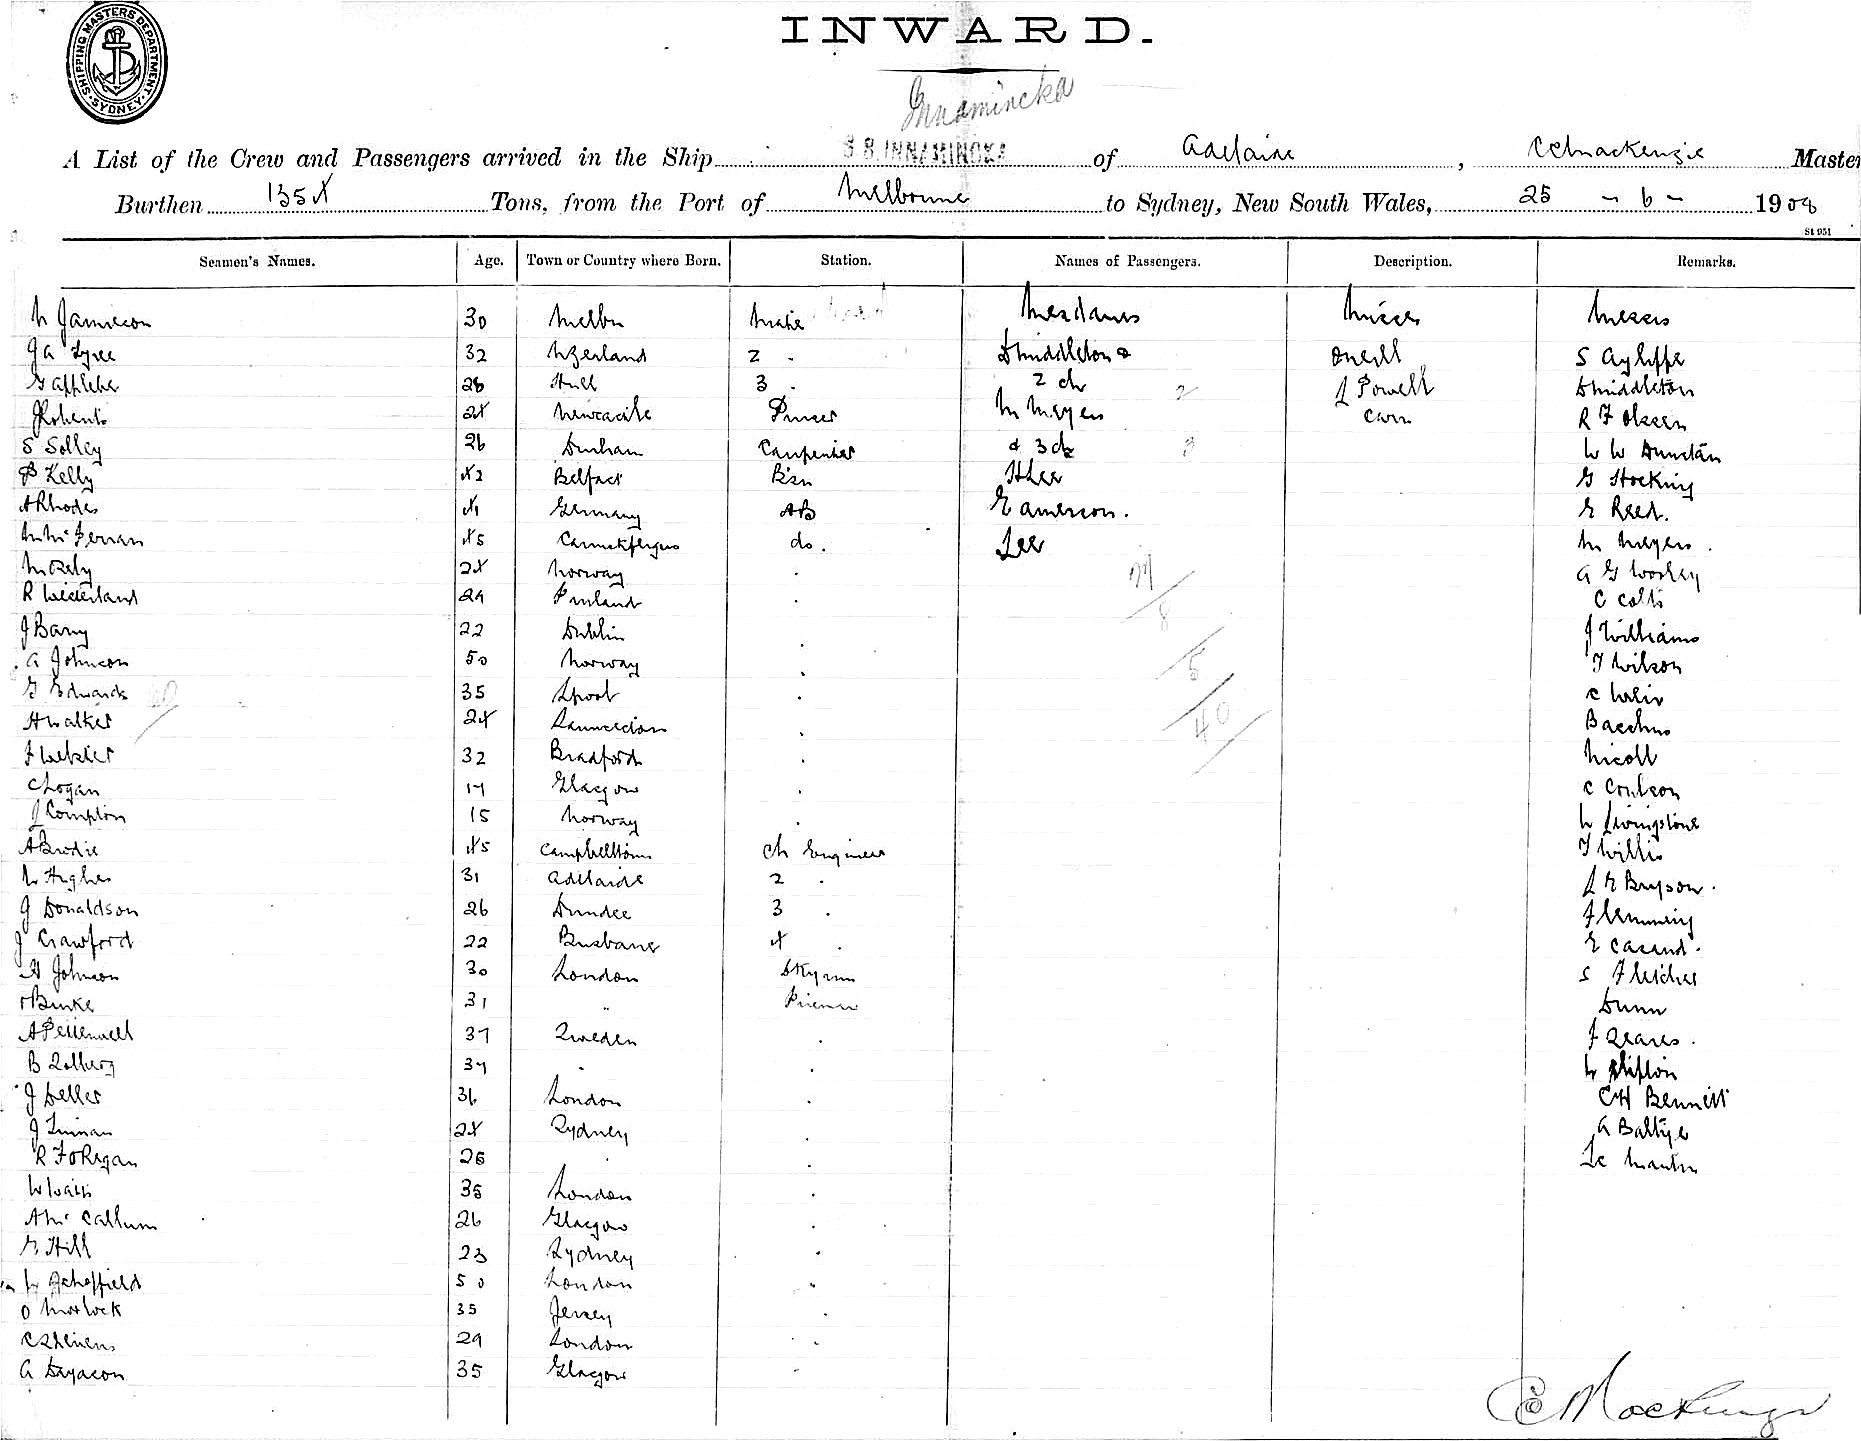 SHIPPING MASTERS DEPARTMENT SYDNEY
INWARD.
Innamincka
A List of the Crew and Passengers arrived in the Ship S.S. INNAMINCKA of Adelaide, C E Mackenzie Master
Burthen 135 Tons, from the Port of Melbourne to Sydney, New South Wales, 25 - 6 - 1908
St 951
Seamen's Names. Age. Town or Country where Born. Station. Names of Passengers. Description. Remarks.
Jamieson 30 Melbn Mate Mesdames Misses Messrs
J A Tyree 32 NZealand 2 . D Middleton & O'Neill S Ayliffe
26 Hull 3 . 2 ch 2 L Powell D Middleton
J Roberts 24 Newcastle Purser M Meyers R F Olssen
S Solley 26 Durham Carpenter & 3 ch 3 W W Dunstan
P Kelly 42 Belfast B'sn H Lee G Stocking
A Rhodes 41 Germany AB E Amerson. E Reed.
45 do. Lee M Meyers.
24 Norway . 27 A G Worley
29 Finland . 8 C Colts
J Barry 22 Dublin . J Williams
A Johnson 50 Norway . 5 T Wilson
G Edwards 35 Lpool . C Weir
H Walker 24 Launceston . 40 Bacchus
F Webster 32 Bradford . Nicoll
C Logan 17 Glasgow . C Coulson
J Compton 15 Norway . W Livingstone
A Brodie 45 Campbelltown Ch Engineer T Willis
W Hughes 31 Adelaide 2 . L E Bryson.
J Donaldson 26 Dundee 3 . Flemming
J Crawford 22 Brisbane 4 .
H Johnson 30 London Dkyman S Fletcher
Burke 31 " Fireman Dunn
37 Sweden . F Seares.
B Solberg 37 . . W Clifton
J Deller 36 London . C H Bennett
24 Sydney . A
R F O'Regan 26 . . Martin
W Watts 35 London .
A McCallum 26 Glasgow .
E Hill 23 Sydney .
W Scheffield 50 London "
O Morlock 35 Jersey .
C Stevens 29 London .
A 35 Glasgow -
C E Mackenzie